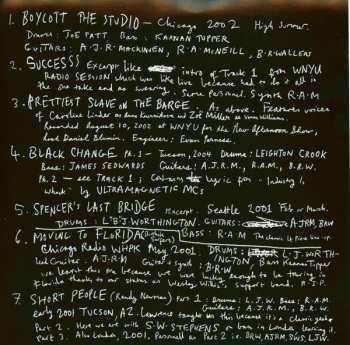 1. BOYCOTT THE STUDIO - Chicago 2002 High Summer.
Drums: JOE PATT Bass: KAANAN TUPPER
GUITARS: A.J.R. MACKINVEN, R.A. MCNEILL, B.R. WALLERS
2. SUCCESSS Excerpt like intro of Track 1 from WNYU
RADIO SESSION which was like live because had to do it all in
the one take and no swearing. Personal. Synth R.A.M
3. PRETTIEST SLAVE ON THE BARGE. As above. Features voices
of Caroline Linder as and Zoe Miller as
Recorded August 10, 2002 at WNYU for The New Afternoon Show,
host Daniel Blumin. Engineer: Evan
4. BLACK CHANGE Pt. 2 - Tucson, 2004 Drums: LEIGHTON CROOK
Bass: JAMES SEDWARDS Guitars: A.J.R.M., R.A.M., B.R.W.
Pt. 2 - see TRACK 1; Contains lyric from Industry 1,
by ULTRAMAGNETIC MCs
5. SPENCER'S LAST BRIDGE Excerpt. Seattle 2001 Feb or March.
DRUMS: L'B'J WORTHINGTON. GUITARS: AJRM, BRW
6. MOVING TO FLORIDA BASS: R.A.M The classic
Chicago Radio WHPK May 2001. DRUMS: L.J. WORTH-
Guitar: A.J.R.M Guitar & Synth: B.R.W INGTON, Bass Kaanan Tupper
we learnt this one because we were lucky enough to be touring in
Florida thanks to our status as Wesley Willis's support band.
7. SHORT PEOPLE (Randy Newman) Part 1: Drums: L.J.W. Bass: R.A.M.
early 2001 TUCSON, AZ. Guitars: A.J.R.M., B.R.W.
Lawrence taught us this because it's a classic
Part 2. Here we are with S.W. STEPHENS on bass in London, leaving it.
Part 3. Also London, 2001. Personnel as Part 2 i.e. BRW, AJRM, SWS, LJW.